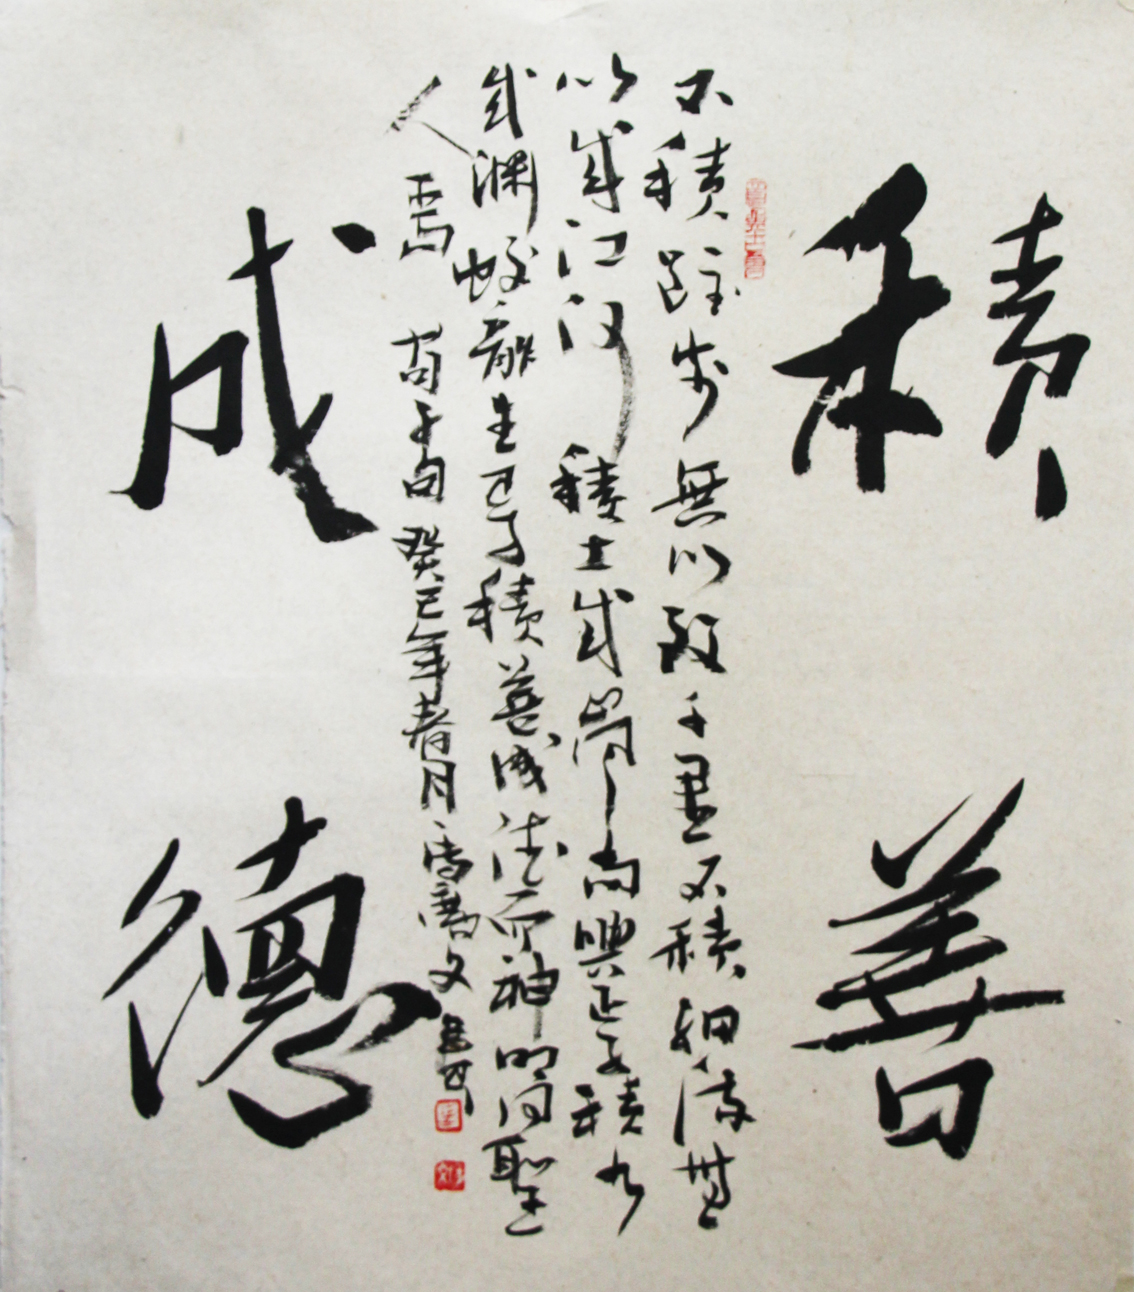 積善
不積跬步無以致千里不積細流無
以成江河積土成山風雨興焉積水
成淵蛟龍生焉積善成德而神明同聖
人焉 荀子句 癸巳年春月
成德